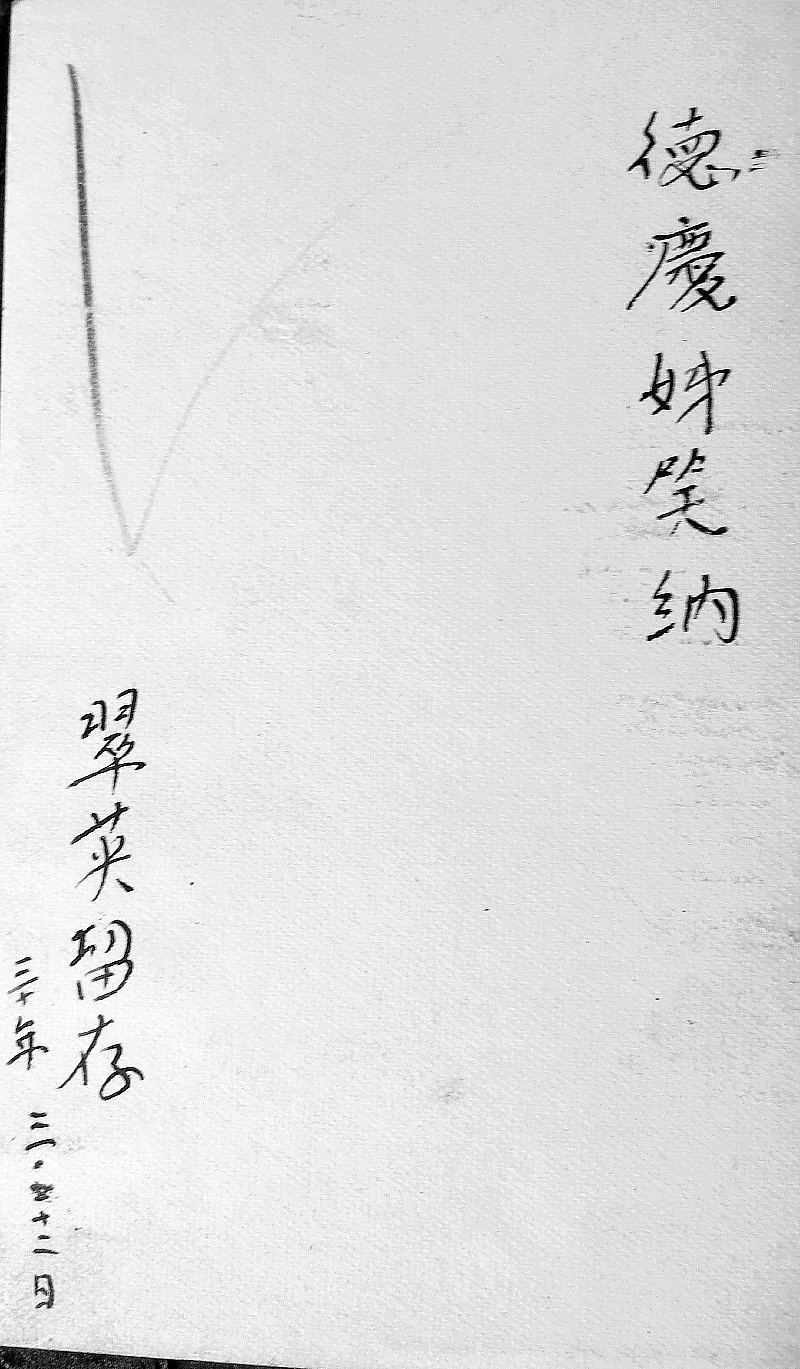 德慶姊笑納
翠英留存
三十年 三．十二日